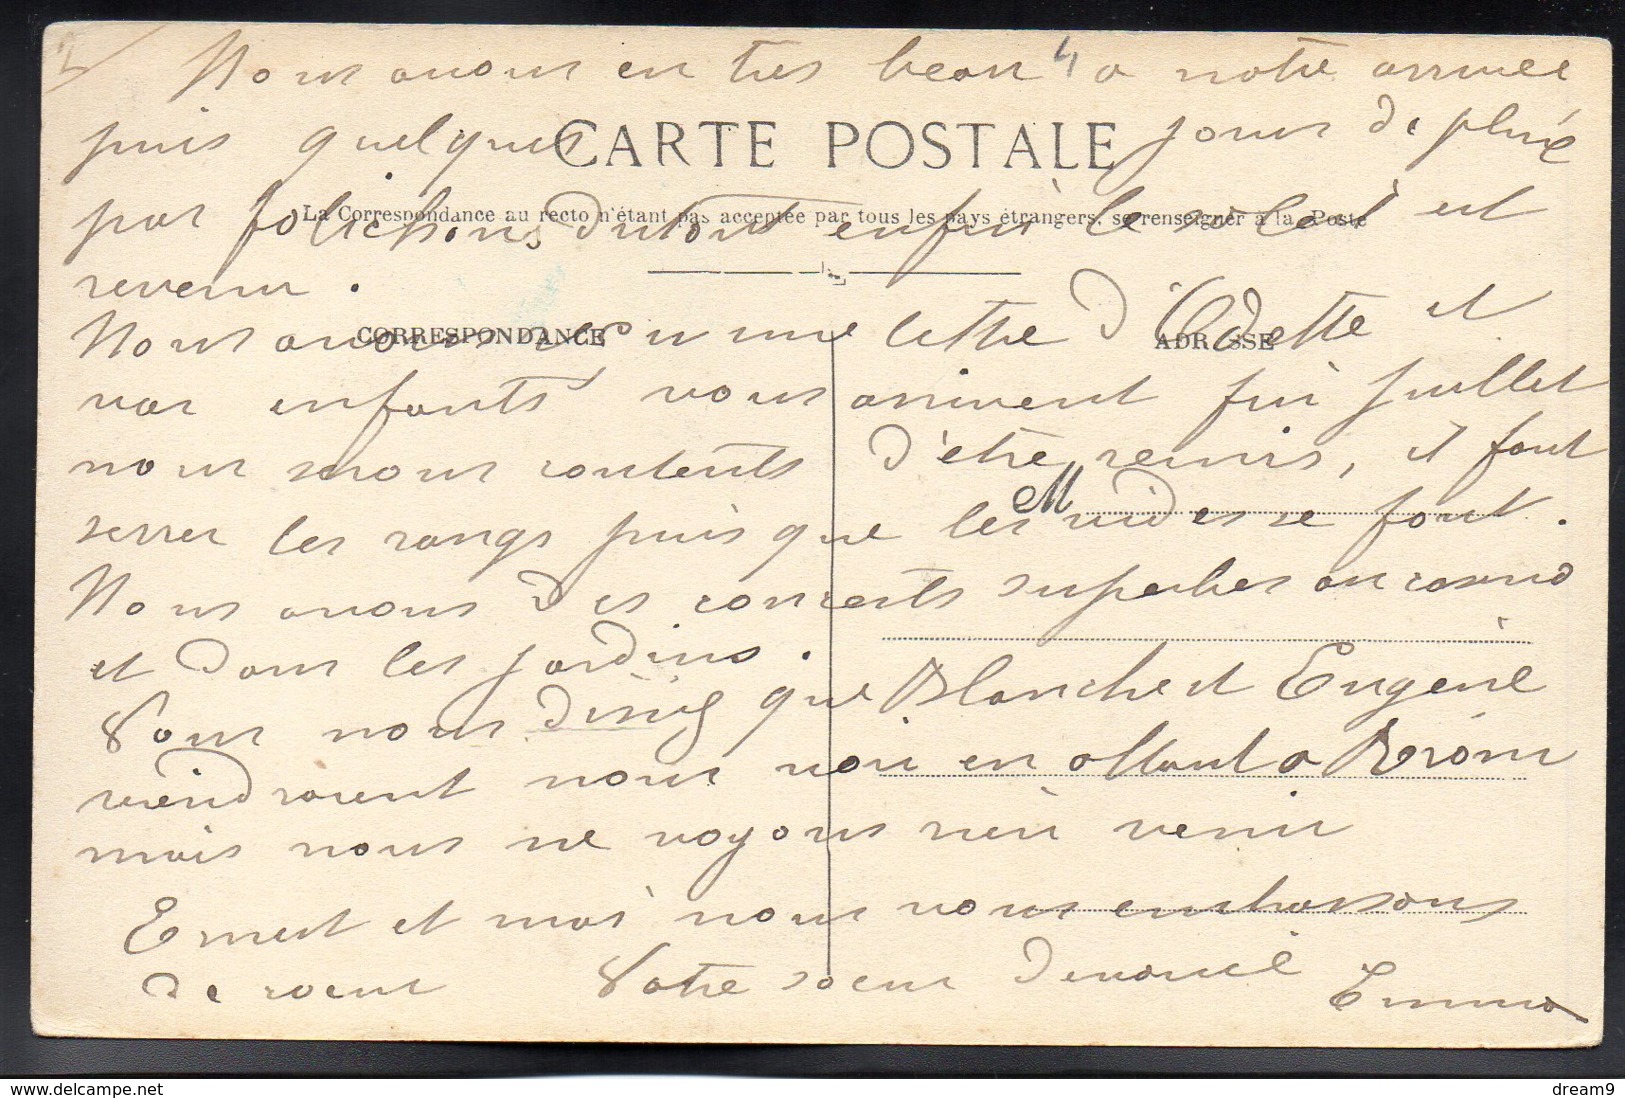 2
Nous avons eu très beau 4 a notre arrivée
puis quelques jours de pluie
CARTE POSTALE
pas folichons du tout enfin le soleil est
La Correspondance au recto n'étant pas acceptée par tous les pays étrangers, se renseigner à la Poste
revenu.
Nous avons eu une lettre d'Odette et
CORRESPONDANCE
ADRESSE
vos enfants vous arrivent fin Juillet
nous serons contents d'être réunis, il faut
M
serrer les rangs puisque les vides se font.
Nous avons des concerts superbes au casino
et dans les jardins.
Vous nous disiez que Blanche et Eugène
viendraient nous voir en allant a
mais nous ne voyons rien venir
Ernest et moi nous vous embrassons
de coeur Votre soeur dévouée Emma
dream9
www.delcampe.net